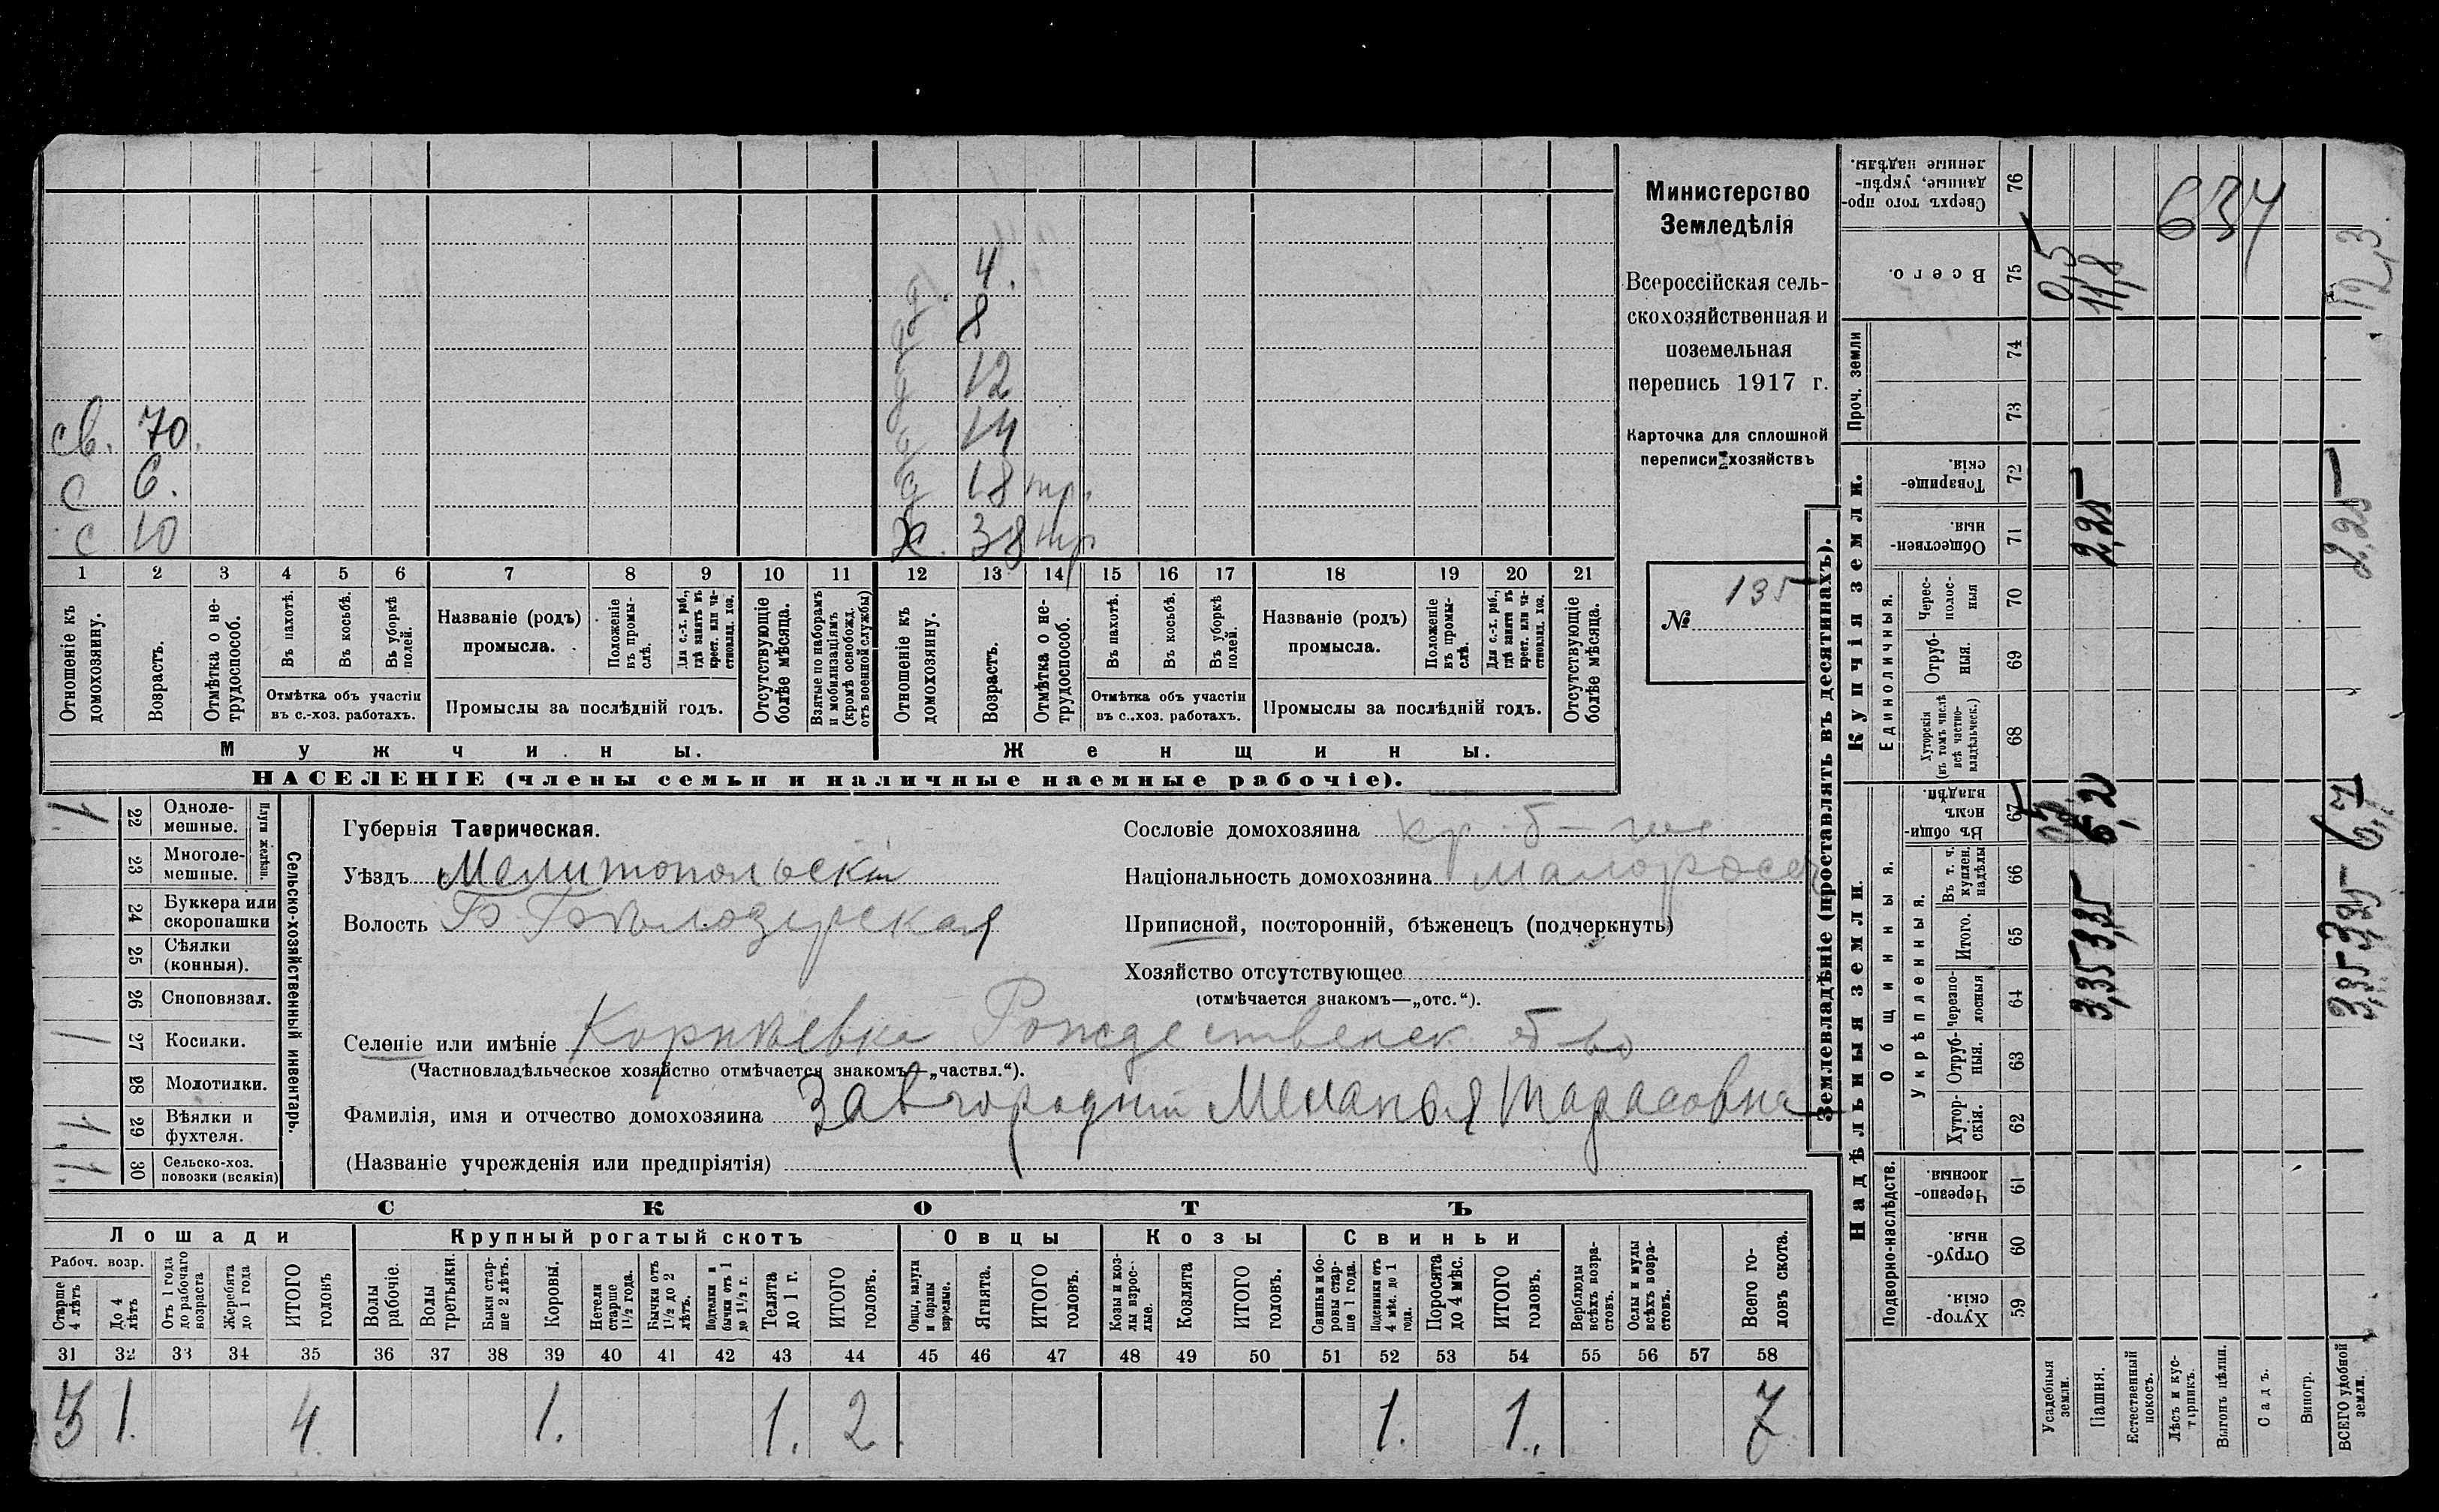 св. 70.
с 6.
с 10
д. 4.
д 8
д 12
д 14
д 18 тр.
ж. 38 тр
1 2 3 4 5 6 7 8 9 10 11 12 13 14 15 16 17 18 19 20 21
Отношеніе къ домохозяину.
Возрастъ.
Отмѣтка о не-
трудоспособ.
Въ пахотѣ.
Въ косьбѣ.
Въ уборкѣ
полей.
Отмѣтка объ участіи
въ с.-хоз. работахъ.
Названіе (родъ)
промысла.
Положеніе
въ промы-
слѣ.
Для с.-х. раб.,
гдѣ занятъ въ
крест. или ча-
стновлад. хоз.
Промыслы за послѣдній годъ.
Отсутствующіе
болѣе мѣсяца.
Взятые по наборамъ
и мобилизаціямъ
(кромѣ освобожд.
отъ военной службы)
Отношеніе къ
домохозяину.
Возрастъ.
Отмѣтка о не-
трудоспособ.
Въ пахотѣ.
Въ косьбѣ.
Въ уборкѣ
полей.
Отмѣтка объ участіи
въ с.-хоз. работахъ.
Названіе (родъ)
промысла.
Положеніе
въ промы-
слѣ.
Для с.-х. раб.,
гдѣ заняти въ
крест. или ча-
стновлад. хоз.
Промыслы за послѣдній годъ.
Отсутствующіе
болѣе мѣсяца.
Мужчины.
Женщины.
НАСЕЛЕНІЕ (члены семьи и наличные наемные рабочіе).
Министерство
Земледѣлія
Всероссійская сель-
скохозяйственная и
поземельная
перепись 1917 г.
Карточка для сплошной
переписи хозяйствъ
№ 135
1 22 Одноле-
мешные.
23 Многоле-
мешные.
Плуги желѣзн.
24 Буккера или
скоропашки
25 Сѣялки
(конныя).
26 Сноповязал.
1 27 Косилки.
28 Молотилки.
1. 29 Вѣялки и
фухтеля.
1. 30 Сельско-хоз.
повозки (всякія)
Сельско-хозяйственный инвентарь.
Губернія Таврическая.
Уѣздъ Мелитопольскій
Волость Б Бѣлозерская
Селеніе или имѣніе Корнѣевка Рождественск. об-во
(Частновладѣльческое хозяйство отмѣчается знакомъ—„частвл.“).
Фамилія, имя и отчество домохозяина Завгородній Меланья Тарасовна
(Названіе учрежденія или предпріятія)
Сословіе домохозяина кр. б-
Національность домохозяина Малоросс
Приписной, посторонній, бѣженецъ (подчеркнуть)
Хозяйство отсутствующее
(отмѣчается знакомъ—„отс.“).
СКОТЪ
Лошади
Крупный рогатый скотъ
Овцы
Козы
Свиньи
Рабоч. возр.
Старше
4 лѣтъ
До 4
лѣтъ
Отъ 1 года
до рабочаго
возраста
Жеребята
до 1 года
ИТОГО
головъ
Волы
рабочіе.
Волы
третьяки.
Быки стар-
ше 2 лѣтъ.
Коровы.
Нетели
старше
1½ года.
Бычки отъ
1½ до 2
лѣтъ.
Подтелки и
бычки отъ 1
до 1½ г.
Телята
до 1 г.
ИТОГО
головъ.
Овцы, валухи
и бараны
взрослые.
Ягнята.
ИТОГО
головъ.
Козы и коз-
лы взрос-
лые.
Козлята
ИТОГО
головъ.
Свиньи и бо-
ровы стар-
ше 1 года.
Подсвинки отъ
4 мѣс. до 1
года.
Поросята
до 4 мѣс.
ИТОГО
головъ.
Верблюды
всѣхъ возра-
стовъ.
Ослы и мулы
всѣхъ возра-
стовъ.
Всего го-
ловъ скота.
31 32 33 34 35 36 37 38 39 40 41 42 43 44 45 46 47 48 49 50 51 52 53 54 55 56 57 58
3 1. 4. 1. 1. 2. 1. 1. 7
Землевладѣніе (проставлять въ десятинахъ).
Надѣльныя земли.
Купчія земли.
Проч. земли
Подворно-наслѣдств.
Общинныя.
Укрѣпленныя.
Единоличныя.
Хутор-
скія. 59
Отруб-
ныя. 60
Черезпо-
лосныя 61
Хутор-
скія. 62
Отруб-
ныя. 63
Черезпо-
лосныя 64
Итого. 65
Въ т. ч.
куплен.
надѣлы 66
Въ общи-
номъ
владѣн. 67
Хуторскія
(въ томъ числѣ
всѣ частно-
владѣльческ.) 68
Отруб-
ныя. 69
Черес-
полос-
ныя 70
Обществен-
ныя. 71
Товарище-
скія. 72
73
74
Всего. 75
Сверхъ того про-
данные, укрѣп-
ленные надѣлы. 76
Усадебныя
земли. 0,5 0,5
Пашня. 3,35 3,35 6,2 2,25 11,8
Естественный
покосъ.
Лѣсъ и кус-
тарникъ.
Выгонъ цѣлин.
Садъ.
Виногр.
ВСЕГО удобной
земли. 3,35 3,35 6,7 2,25 12,3
637